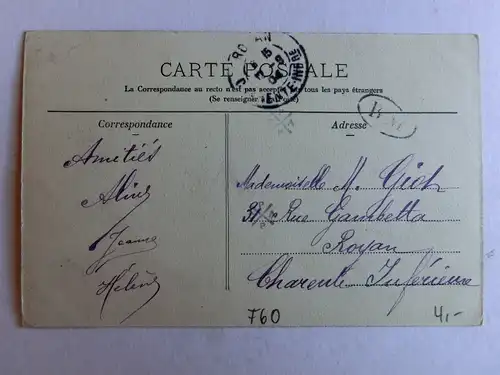 CARTE POSTALE
La Correspondance au recto n'est pas acceptée par tous les pays étrangers
(Se renseigner à la Poste)
Correspondance
Adresse
Amitiés
Aline
Jeanne
Hélène
Mademoiselle M.
Rue Gambetta
Royan
Charente Inférieure
ROYAN
760
4,-